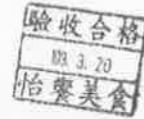 驗收合格
109. 3. 20
怡饗美食